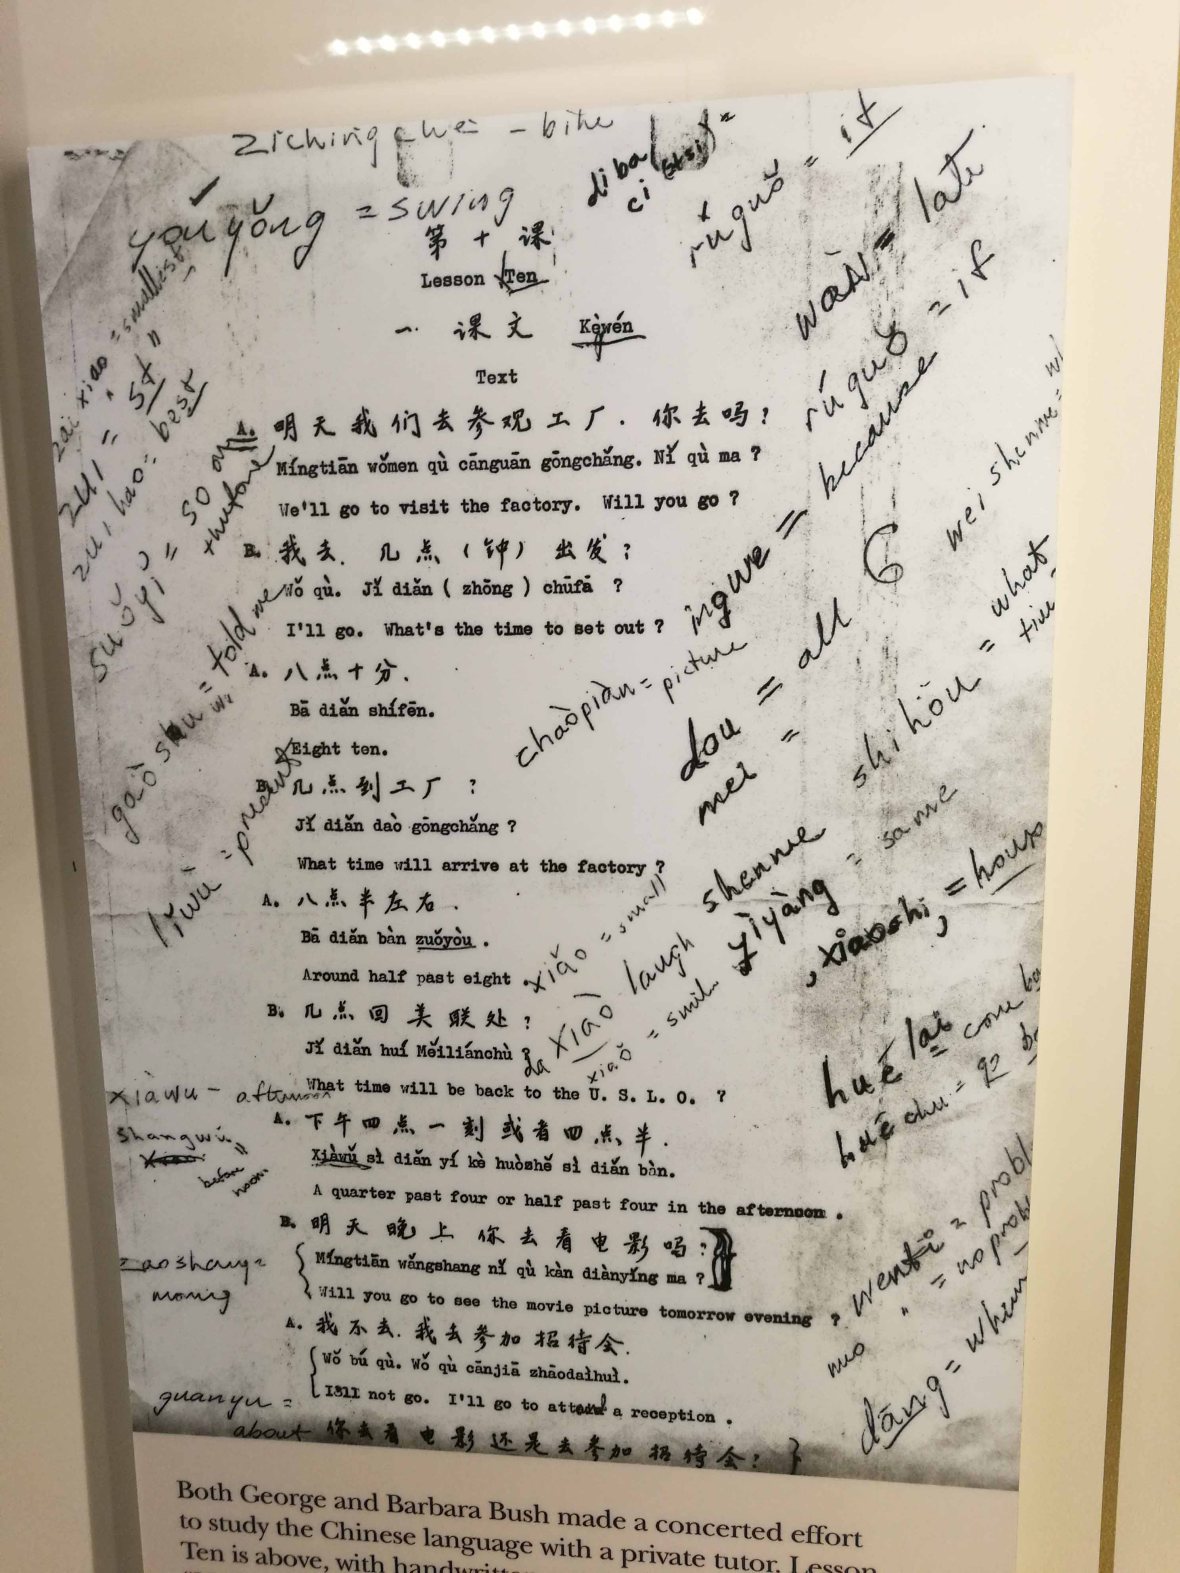 zichingche - bike
diba
ci
yóuyǒng = swing
rúguǒ = if
wàn = late
rúguǒ = if
第十课
Lesson Ten
一. 课文 Kèwén
Text
zai xiao = smallest
zui = st "
zui hao = best
suǒyǐ = so
A. 明天我们去参观工厂. 你去吗?
Míngtiān wǒmen qù cānguān gōngchǎng. Nǐ qù ma ?
We'll go to visit the factory. Will you go ?
because
wei shenme =
B. 我去. 几点 (钟) 出发?
Wǒ qù. Jǐ diǎn ( zhōng ) chūfā ?
I'll go. What's the time to set out ?
gàosu = told me
chaòpiàn = picture
dou = all
mei =
shihòu = what time
A. 八点十分.
Bā diǎn shífēn.
Eight ten.
lǐwù =
B. 几点到工厂?
Jǐ diǎn daò gōngchǎng ?
What time will arrive at the factory ?
shenme
yìyàng = same
xiaoshi = hours
A. 八点半左右.
Bā diǎn bàn zuǒyòu .
Around half past eight .
xiǎo = small
da xiaò laugh
xiaǒ = smile
B. 几点回美联处?
Jǐ diǎn huí Měiliánchù ?
What time will be back to the U. S. L. O. ?
huē lai = come
huē chu = go
xiàwu - afternoon
shangwǔ
before noon
A. 下午四点一刻或者四点半.
Xiàwǔ sì diǎn yí kè huòzhě sì diǎn bàn.
A quarter past four or half past four in the afternoon .
B. 明天晚上你去看电影吗?
Míngtiān wǎngshang nǐ qù kàn diànyǐng ma ?
Will you go to see the movie picture tomorrow evening ?
zaoshang =
morning
wenti =
dāng = when
A. 我不去. 我去参加招待会.
Wǒ bú qù. Wǒ qù cānjiā zhāodaìhuì.
I'll not go. I'll go to attend a reception .
guanyu =
about
你去看电影还是去参加招待会?
Both George and Barbara Bush made a concerted effort
to study the Chinese language with a private tutor. Lesson
Ten is above, with